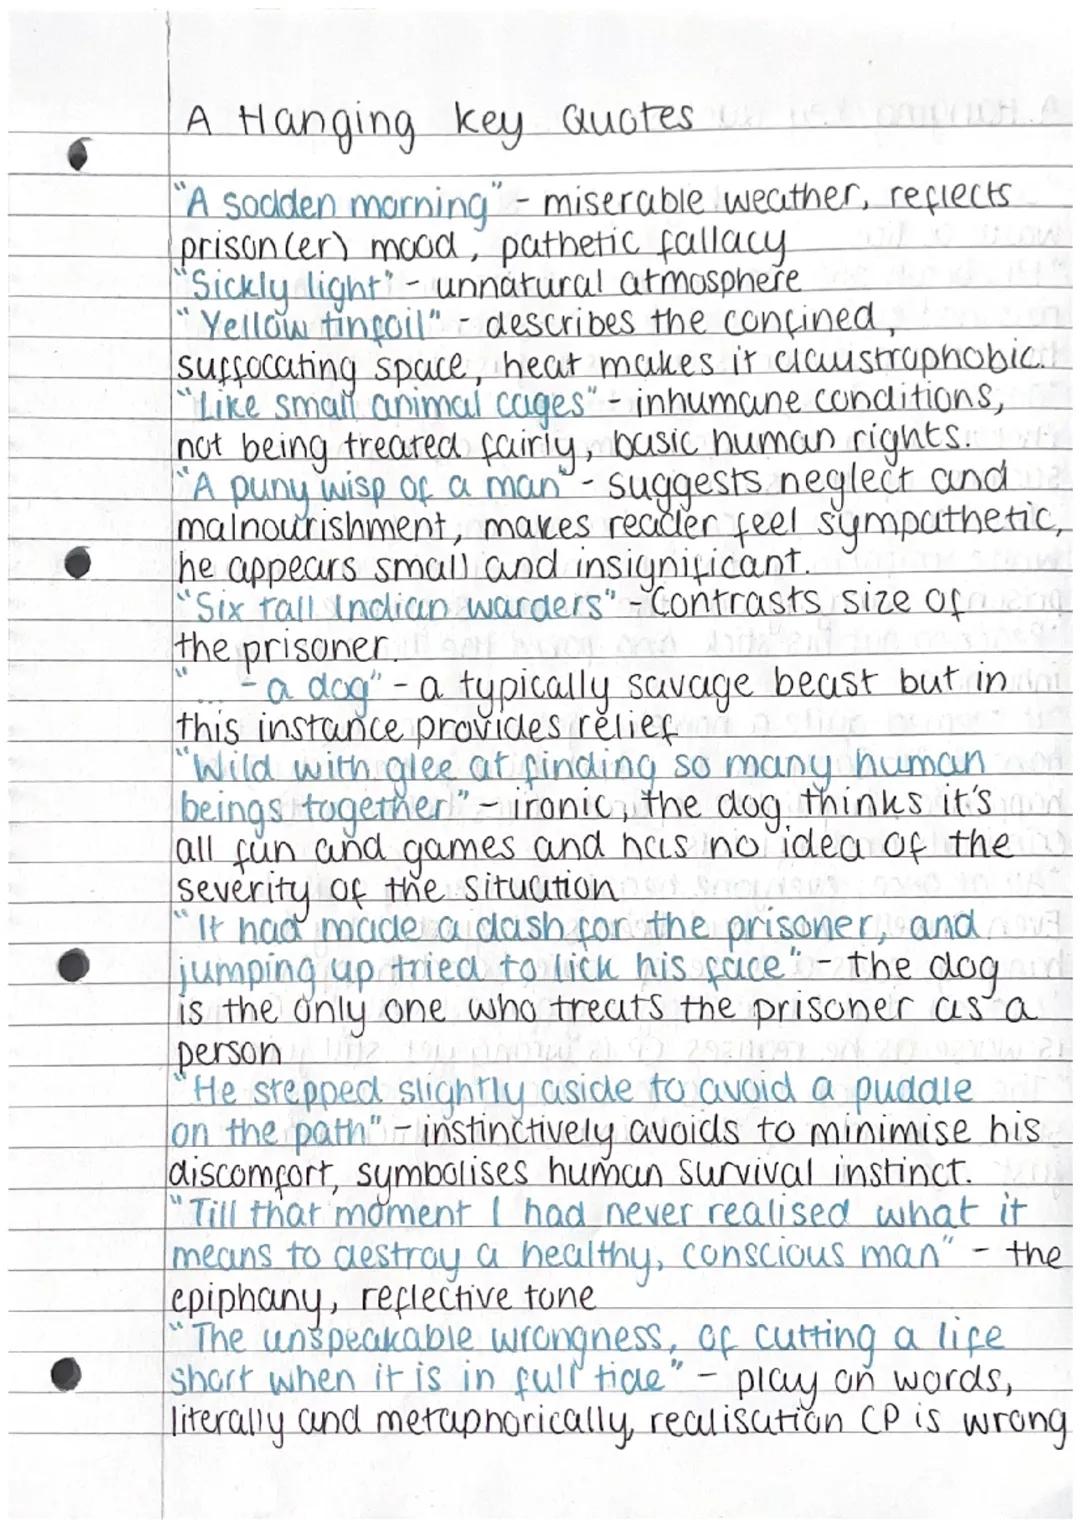 A Hanging key Quotes
"A sodden morning" - miserable weather, reflects
prison(er) mood, pathetic fallacy
"Sickly light" - unnatural atmosphere
"Yellow tinfoil" - describes the confined,
suffocating space, heat makes it claustrophobic.
"Like small animal cages" - inhumane conditions,
not being treated fairly, basic human rights.
"A puny wisp of a man" - suggests neglect and
malnourishment, makes reader feel sympathetic,
he appears small and insignificant.
"Six tall Indian warders" - Contrasts size of
the prisoner.
"... - a dog" - a typically savage beast but in
this instance provides relief
"Wild with glee at finding so many human
beings together" - ironic, the dog thinks it's
all fun and games and has no idea of the
severity of the situation
"It had made a dash for the prisoner, and
jumping up tried to lick his face" - the dog
is the only one who treats the prisoner as a
person
"He stepped slightly aside to avoid a puddle
on the path" - instinctively avoids to minimise his
discomfort, symbolises human survival instinct.
"Till that moment I had never realised what it
means to destroy a healthy, conscious man" - the
epiphany, reflective tone
"The unspeakable wrongness, of cutting a life
short when it is in full tide" - play on words,
literally and metaphorically, realisation CP is wrong